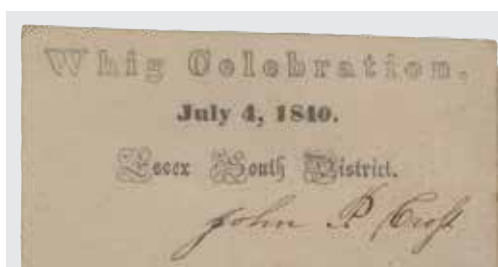 Whig Celebration,
July 4, 1840.
Essex South District.
John P